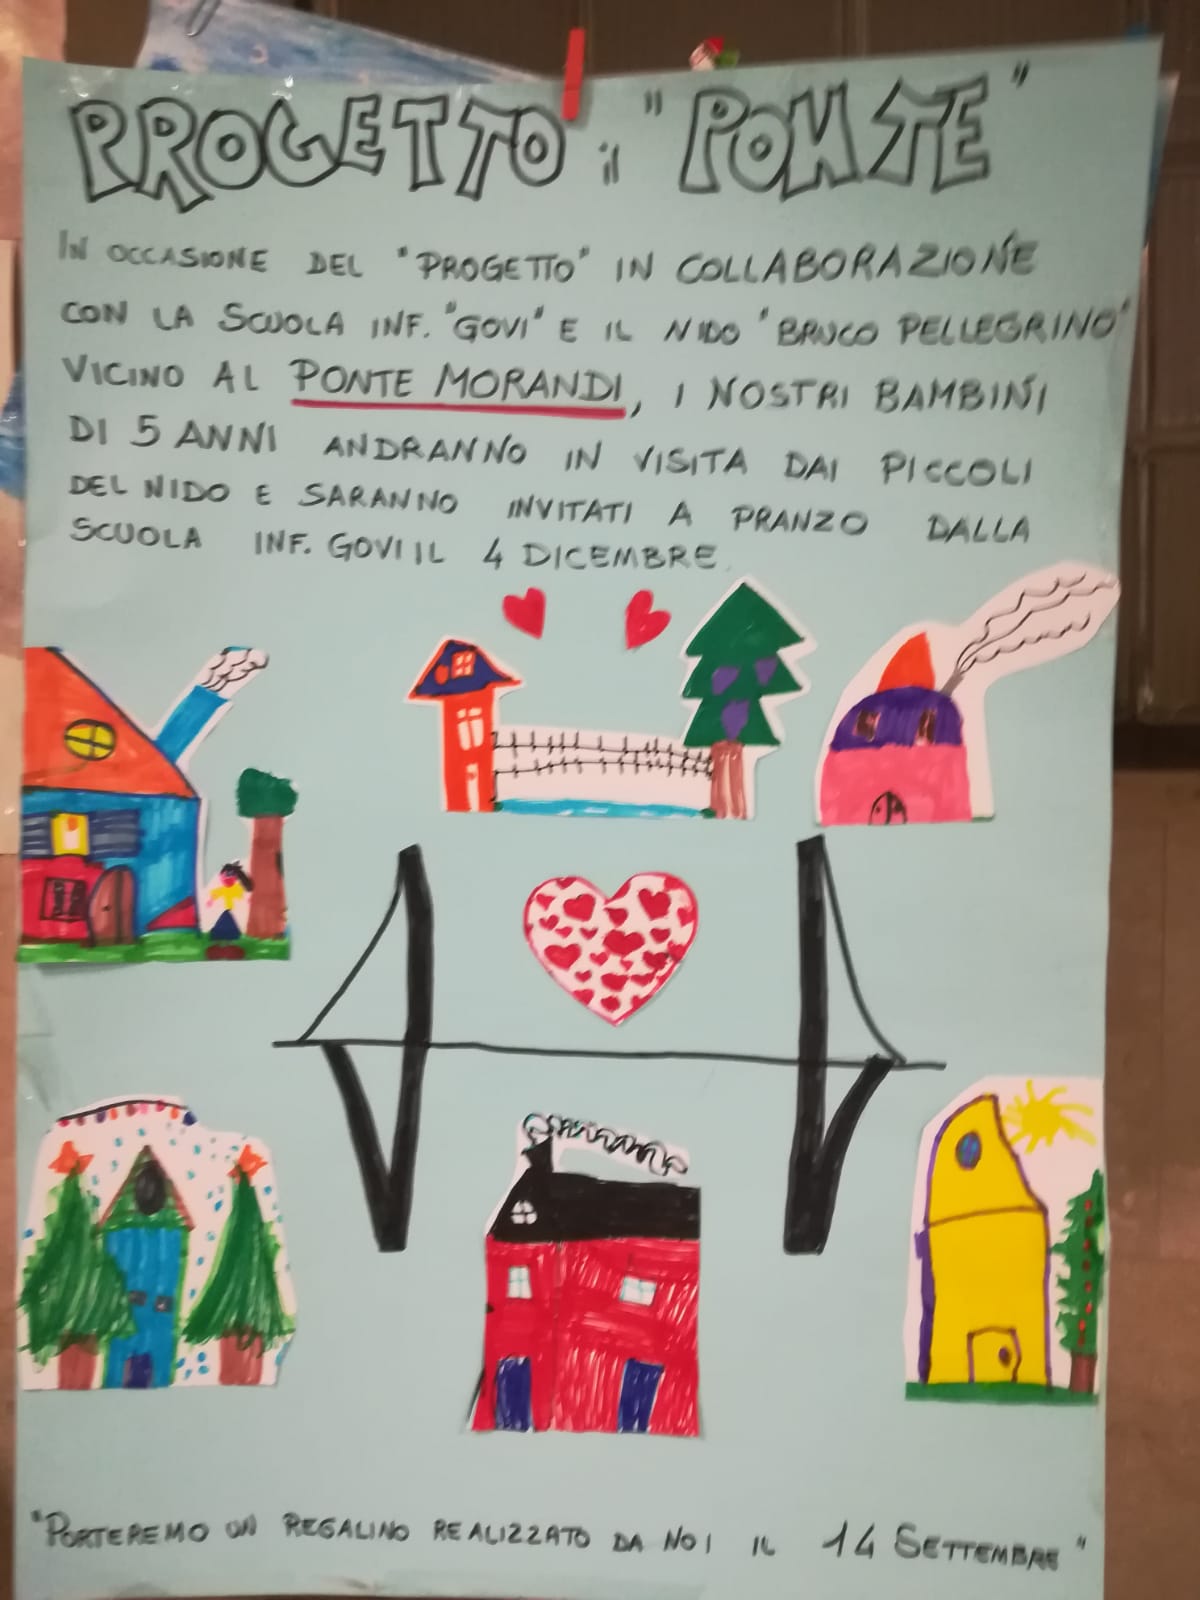 PROGETTO il "PONTE"
IN OCCASIONE DEL "PROGETTO" IN COLLABORAZIONE
CON LA SCUOLA INF. "GOVI" E IL NIDO "BRUCO PELLEGRINO"
VICINO AL PONTE MORANDI, I NOSTRI BAMBINI
DI 5 ANNI ANDRANNO IN VISITA DAI PICCOLI
DEL NIDO E SARANNO INVITATI A PRANZO DALLA
SCUOLA INF. GOVI IL 4 DICEMBRE.
"PORTEREMO UN REGALINO REALIZZATO DA NOI IL 14 SETTEMBRE"